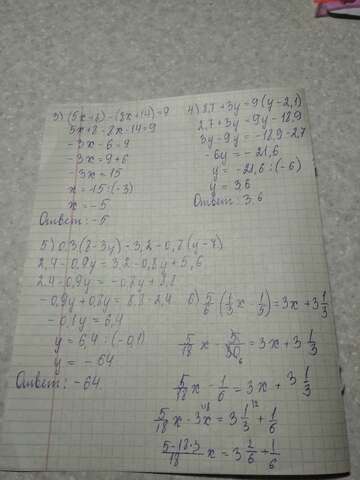 3) (5x+8)-(8x+14)=9
5x+8-8x-14=9
-3x-6=9
-3x=9+6
-3x=15
x=15:(-3)
x=-5
Ответ: -5
4) 2,7+3y=9(y-2,1)
2,7+3y=9y-18,9
3y-9y=-18,9-2,7
-6y=-21,6
y=-21,6:(-6)
y=3,6
Ответ: 3,6
5) 0,3(8-3y)=3,2-0,8(y-7)
2,4-0,9y=3,2-0,8y+5,6
2,4-0,9y=-0,8y+8,8
-0,9y+0,8y=8,8-2,4
-0,1y=6,4
y=6,4:(-0,1)
y=-64
Ответ: -64
6) 5/6(1/3x-1/5)=3x+3 1/3
5/18x-5/30=3x+3 1/3
5/18x-1/6=3x+3 1/3
5/18x-3x=3 1/3+1/6
5-18·3/18x=3 2/6+1/6